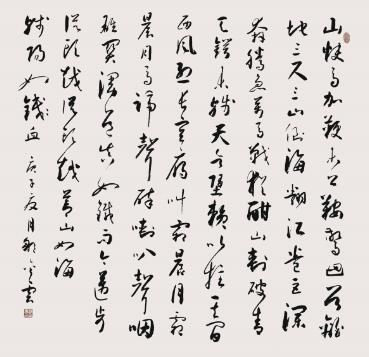 山快马加鞭未下鞍惊回首离
三尺三山倒海翻江卷巨澜
奔腾急万马战犹酣山刺破青
天锷未残天欲堕赖以拄其间
西风烈长空雁叫霜晨月霜
晨月马蹄声碎喇叭声咽
雄关漫道真如铁而今迈步
从头越从头越苍山如海
残阳如血 庚子夏月 云